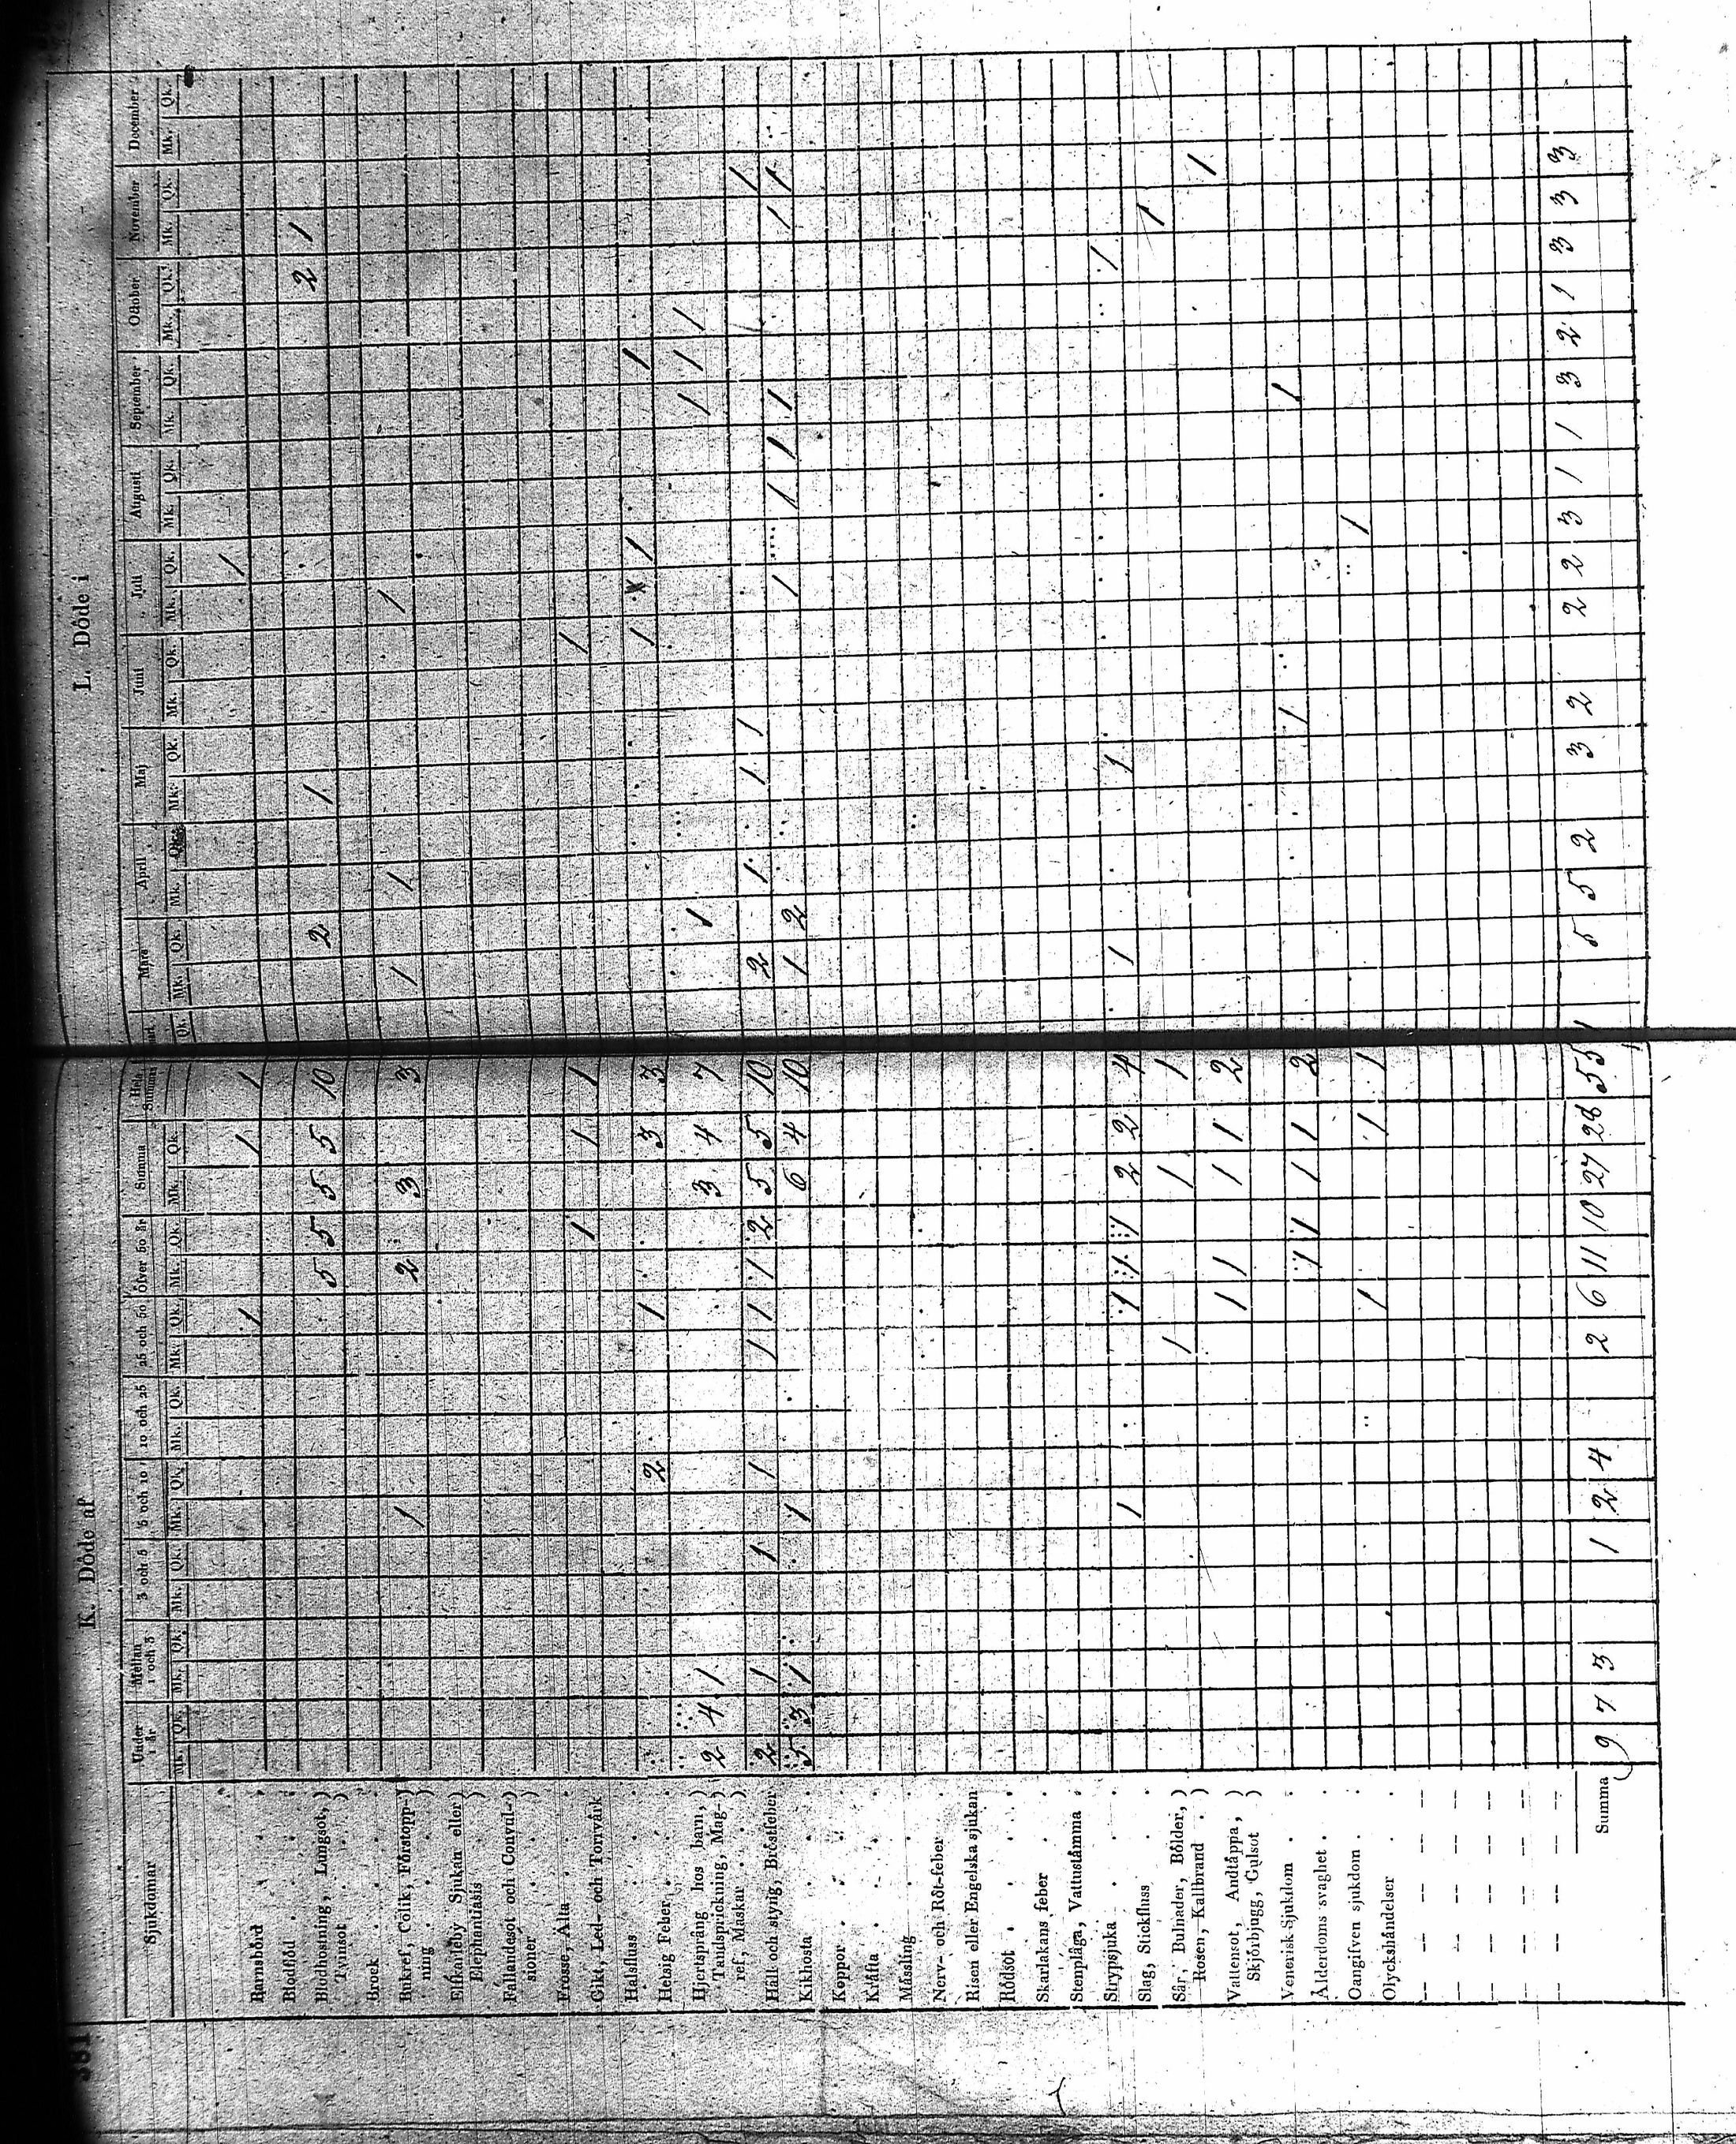 K. Döde af
L. Döde i
Sjukdomar | Under 1 år | Mellan 1 och 3 | 3 och 5 | 5 och 10 | 10 och 25 | 25 och 50 | Öfver 50 år | Summa | Hela Summan
Mk. Qk. Mk. Qk. Mk. Qk. Mk. Qk. Mk. Qk. Mk. Qk. Mk. Qk. Mk. Qk.
Qk. | Mars | April | Maj | Juni | Juli | Augusti | September | October | November | December
Mk. Qk. Mk. Mk. Qk. Mk. Qk. Mk. Qk. Mk. Qk. Mk. Qk. Mk. Qk. Mk. Qk. Mk. Qk.
Barnsbörd . 1 1 1 1
Blodflöd . .
Blodhostning, Lungsot, Tvinsot . . 5 5 5 5 10 2 1 2 1
Brock . . .
Bukref, Colik, Förstoppning . . . 1 2 3 3 1 1 1
Elfkarleby Sjukan eller Elephantiasis
Fallandesot och Convulsioner . .
Frossa, Älta . .
Gikt, Led- och Torrvärk 1 1 1 1
Halsfluss . . .
Hetsig Feber . . 2 1 3 3 1 1 1
Hjertsprång hos barn, Tandsprickning, Magref, Maskar . . 2 4 1 3 4 7 1 1 1 1
Håll och styng, Bröstfeber 2 1 1 1 1 1 1 2 5 5 10 2 1 1 1 1
Kikhosta . . 5 3 1 1 6 4 10 1 2 1 1 1 1 1 1
Koppor . . .
Kräfta . . .
Mässling . .
Nerv- och Röt-feber .
Risen eller Engelska sjukan
Rödsot . . .
Skarlakans feber .
Stenplåga, Vattustämma .
Strypsjuka . .
Slag, Stickfluss . 1 1 1 1 2 2 4 1 1 1
Sår, Bulnader, Bölder, Rosen, Kallbrand . 1 1 1 1
Vattensot, Andtäppa, Skjörbjugg, Gulsot . 1 1 1 1 2 1
Venerisk Sjukdom .
Ålderdoms svaghet . 1 1 1 1 2 1 1
Oangifven sjukdom .
Olyckshändelser . 1 1 1 1
Summa 9 7 3 1 2 4 2 6 11 10 27 28 55 1 5 5 2 3 2 2 2 3 1 1 3 2 1 3 3 3